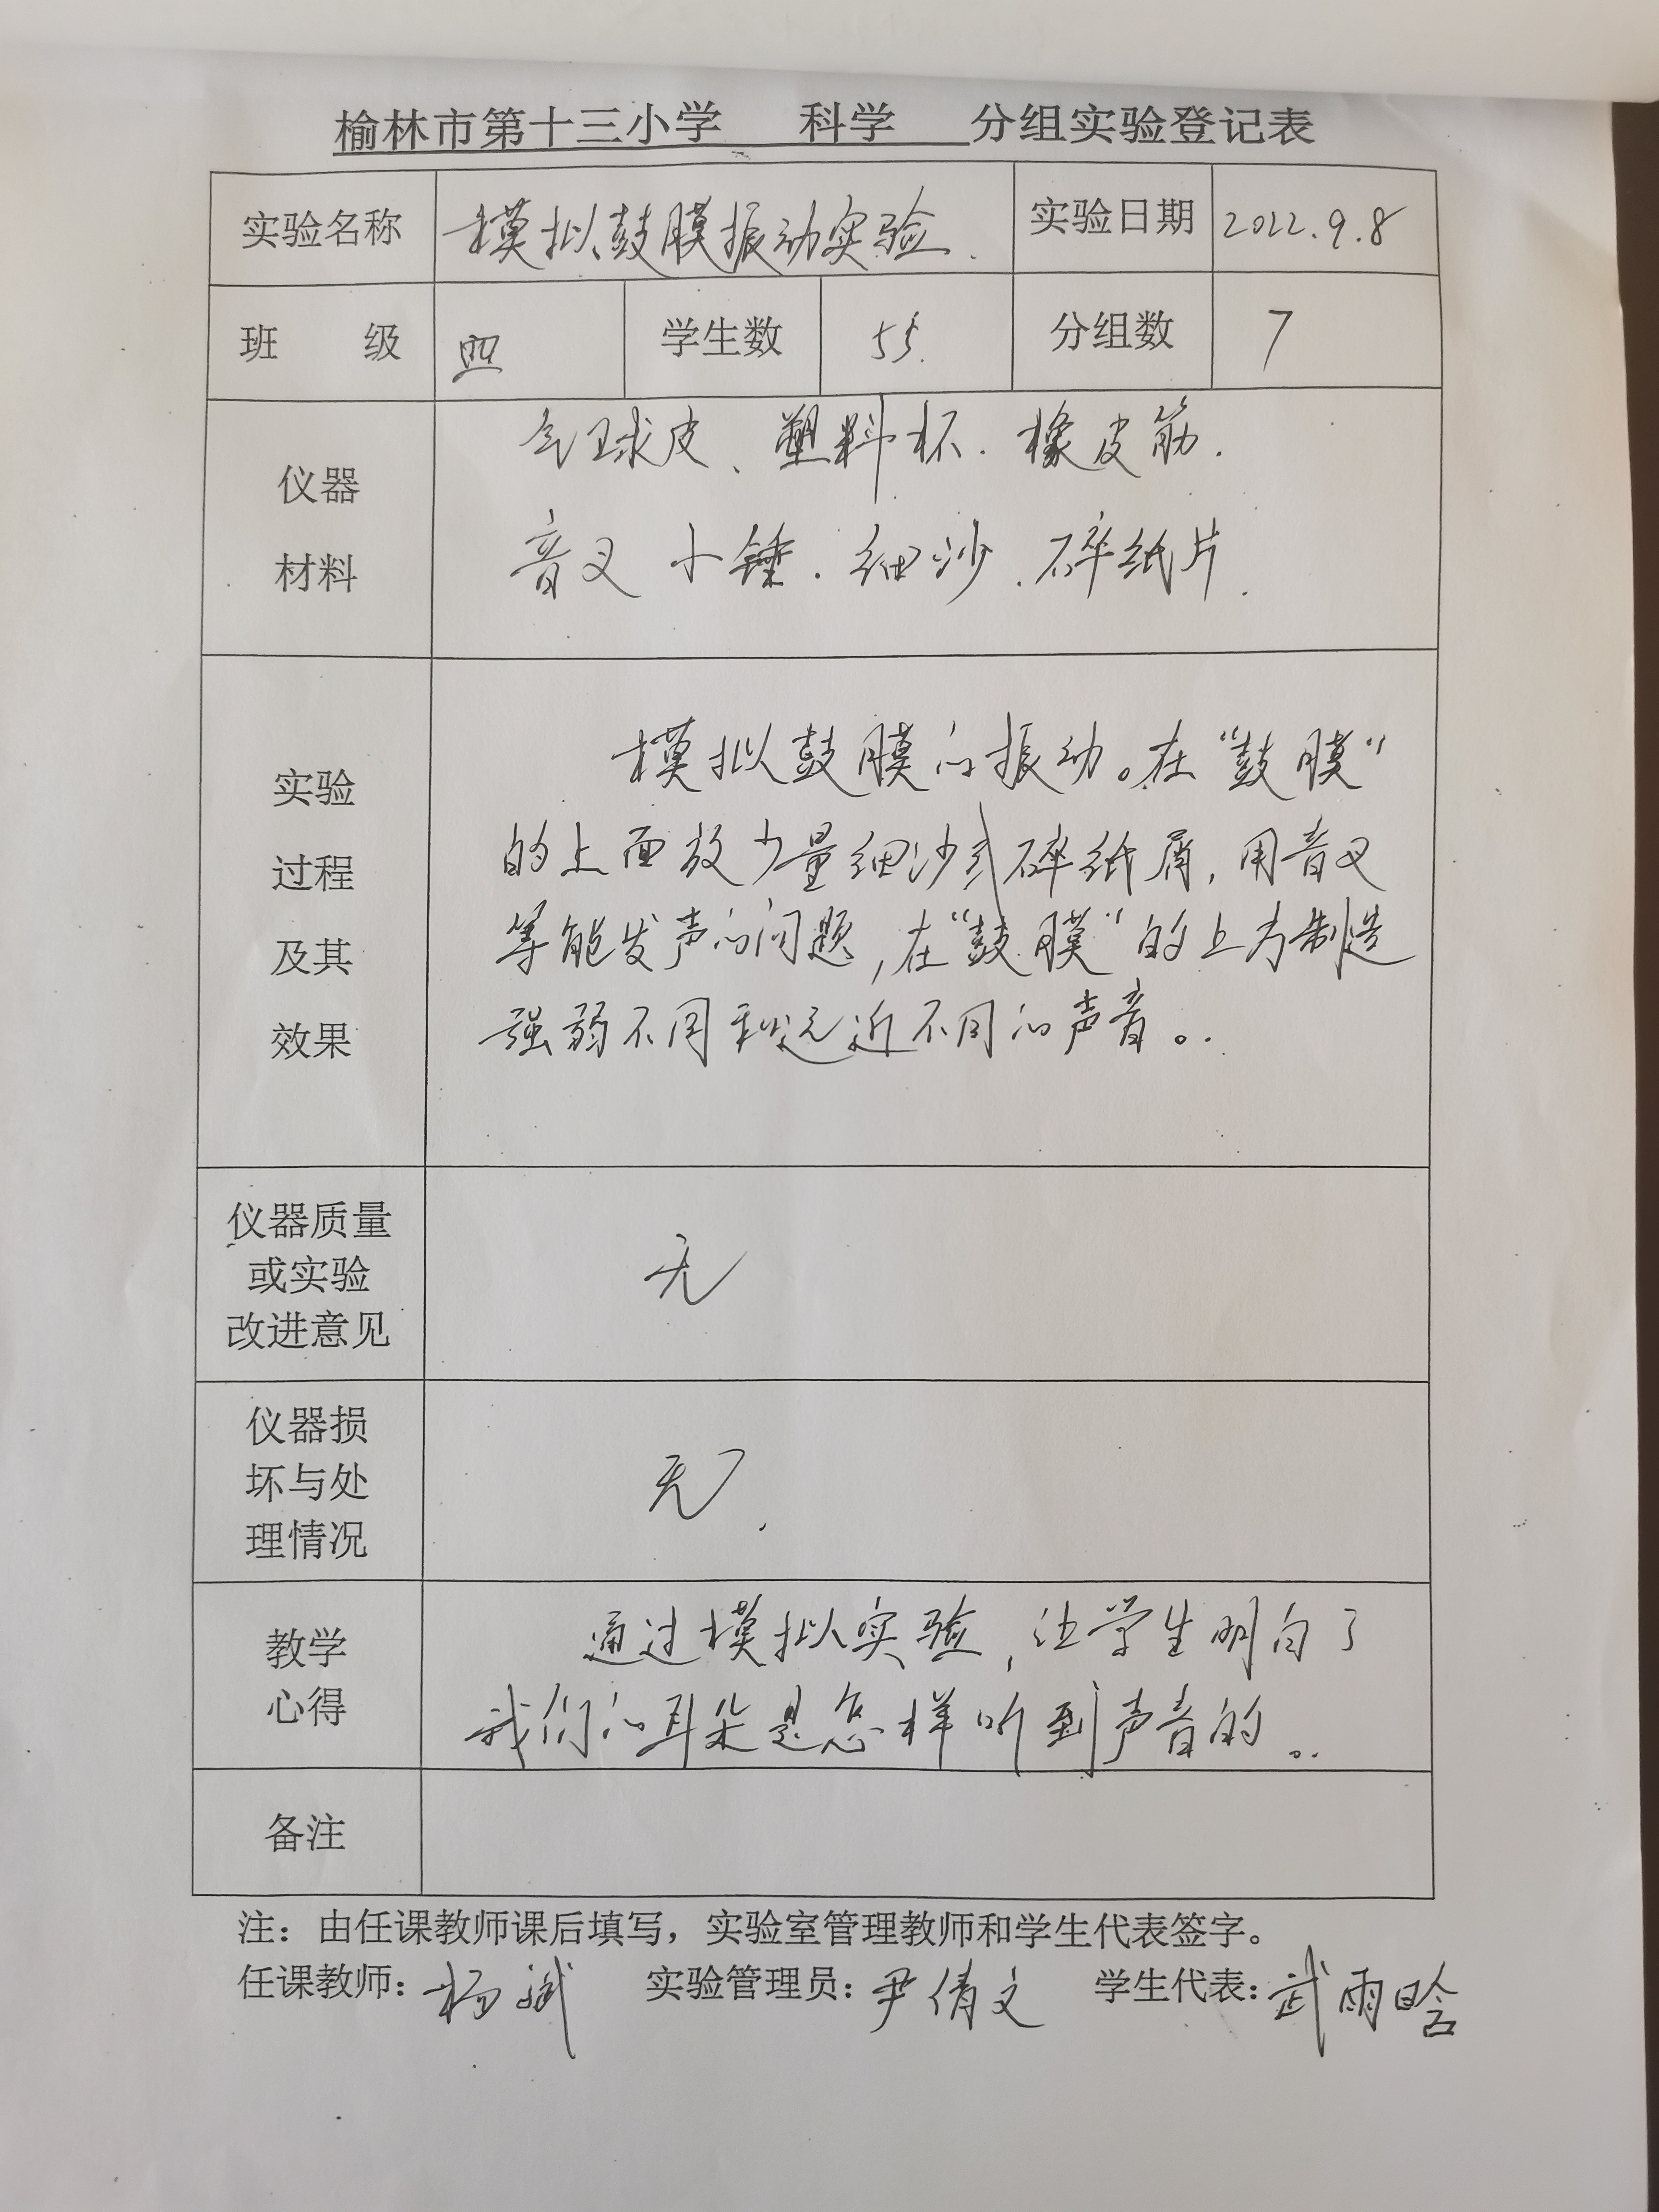 榆林市第十三小学 科学 分组实验登记表
实验名称 模拟鼓膜振动实验. 实验日期 2022.9.8
班 级 四 学生数 55. 分组数 7
仪器
材料
气球皮、塑料杯.橡皮筋.
音叉 小锤.细沙.碎纸片.
实验
过程
及其
效果
模拟鼓膜的振动。在“鼓膜”
的上面放少量细沙或碎纸屑,用音叉
等能发声的问题,在“鼓膜”的上方制造
强弱不同和远近不同的声音。
仪器质量
或实验
改进意见
无
仪器损
坏与处
理情况
无.
教学
心得
通过模拟实验,让学生明白了
我们的耳朵是怎样听到声音的。
备注
注：由任课教师课后填写，实验室管理教师和学生代表签字。
任课教师：杨斌 实验管理员：尹倩文 学生代表：武雨晗